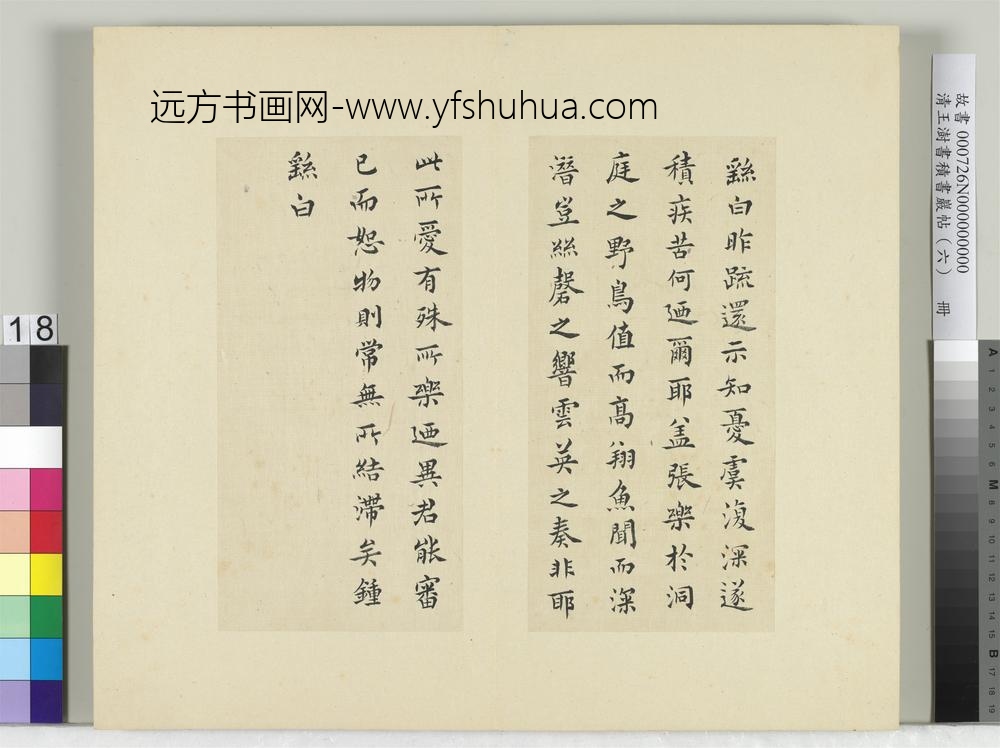 远方书画网-www.yfshuhua.com
繇白昨疏還示知憂虞復深遂
積疾苦何迺爾耶盖張樂於洞
庭之野鳥值而高翔魚聞而深
潛豈絲磬之響雲英之奏非耶
此所愛有殊所樂迺異君能審
已而恕物則常無所結滯矣鍾
繇白
故書 000726N000000000
清王澍書積書巖帖(六) 冊
18
A 1 2 3 4 5 6 M 8 9 10 11 12 13 14 15 B 17 18 19